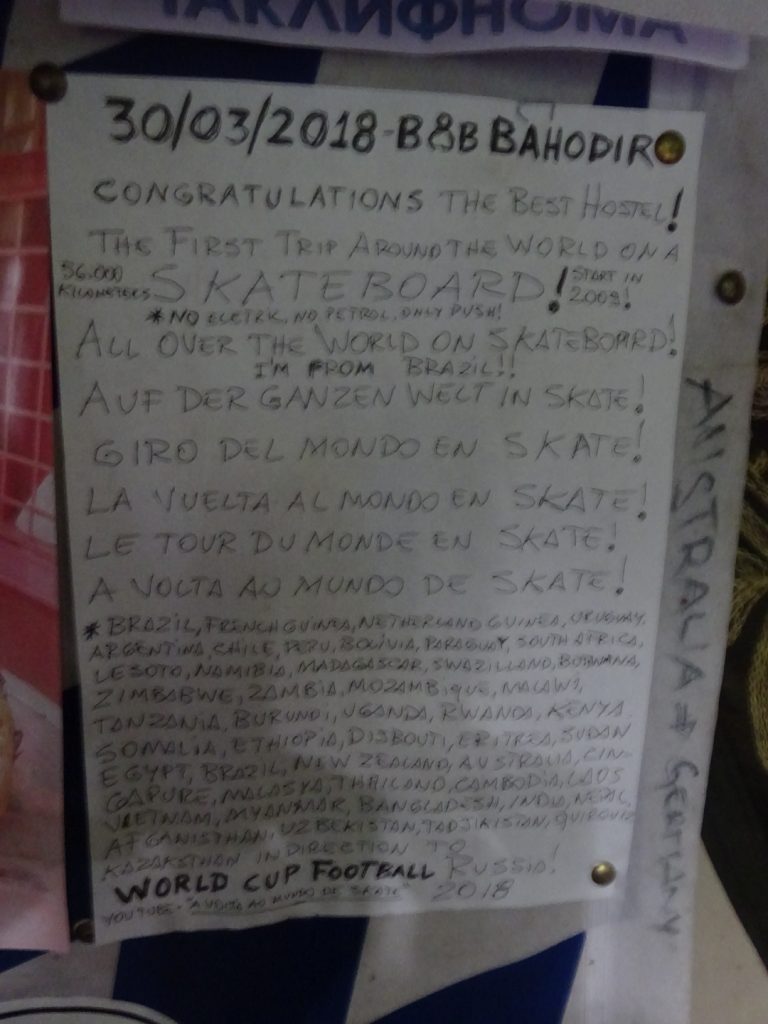 ТАКЛИФНОМА
30/03/2018-B&B BAHODIR
CONGRATULATIONS THE BEST HOSTEL!
THE FIRST TRIP AROUND THE WORLD ON A
56.000 KILOMETERS SKATEBOARD! START IN 2009!
*NO ELETRIC, NO PETROL, ONLY PUSH!
ALL OVER THE WORLD ON SKATEBOARD!
I'M FROM BRAZIL!!
AUF DER GANZEN WELT IN SKATE!
GIRO DEL MONDO EN SKATE!
LA VUELTA AL MONDO EN SKATE!
LE TOUR DU MONDE EN SKATE!
A VOLTA AO MUNDO DE SKATE!
*BRAZIL, FRENCH GUINEA, NETHERLAND GUINEA, URUGUAY,
ARGENTINA, CHILE, PERU, BOLIVIA, PARAGUAY, SOUTH AFRICA,
LESOTO, NAMIBIA, MADAGASCAR, SWAZILAND, BOTSWANA,
ZIMBABWE, ZAMBIA, MOZAMBIQUE, MALAWI,
TANZANIA, BURUNDI, UGANDA, RWANDA, KENYA
SOMALIA, ETHIOPIA, DJIBOUTI, ERITREA, SUDAN
EGYPT, BRAZIL, NEW ZEALAND, AUSTRALIA, CIN-
GAPURE, MALASYA, THAILAND, CAMBODIA, LAOS
VIETNAM, MYANMAR, BANGLADESH, INDIA, NEPAL,
AFGANISTHAN, UZBEKISTAN, TADJIKISTAN,
KAZAKSTHAN IN DIRECTION TO
WORLD CUP FOOTBALL RUSSIA! 2018
YOUTUBE - "A VOLTA AO MUNDO DE SKATE"
AUSTRALIA → GERMANY